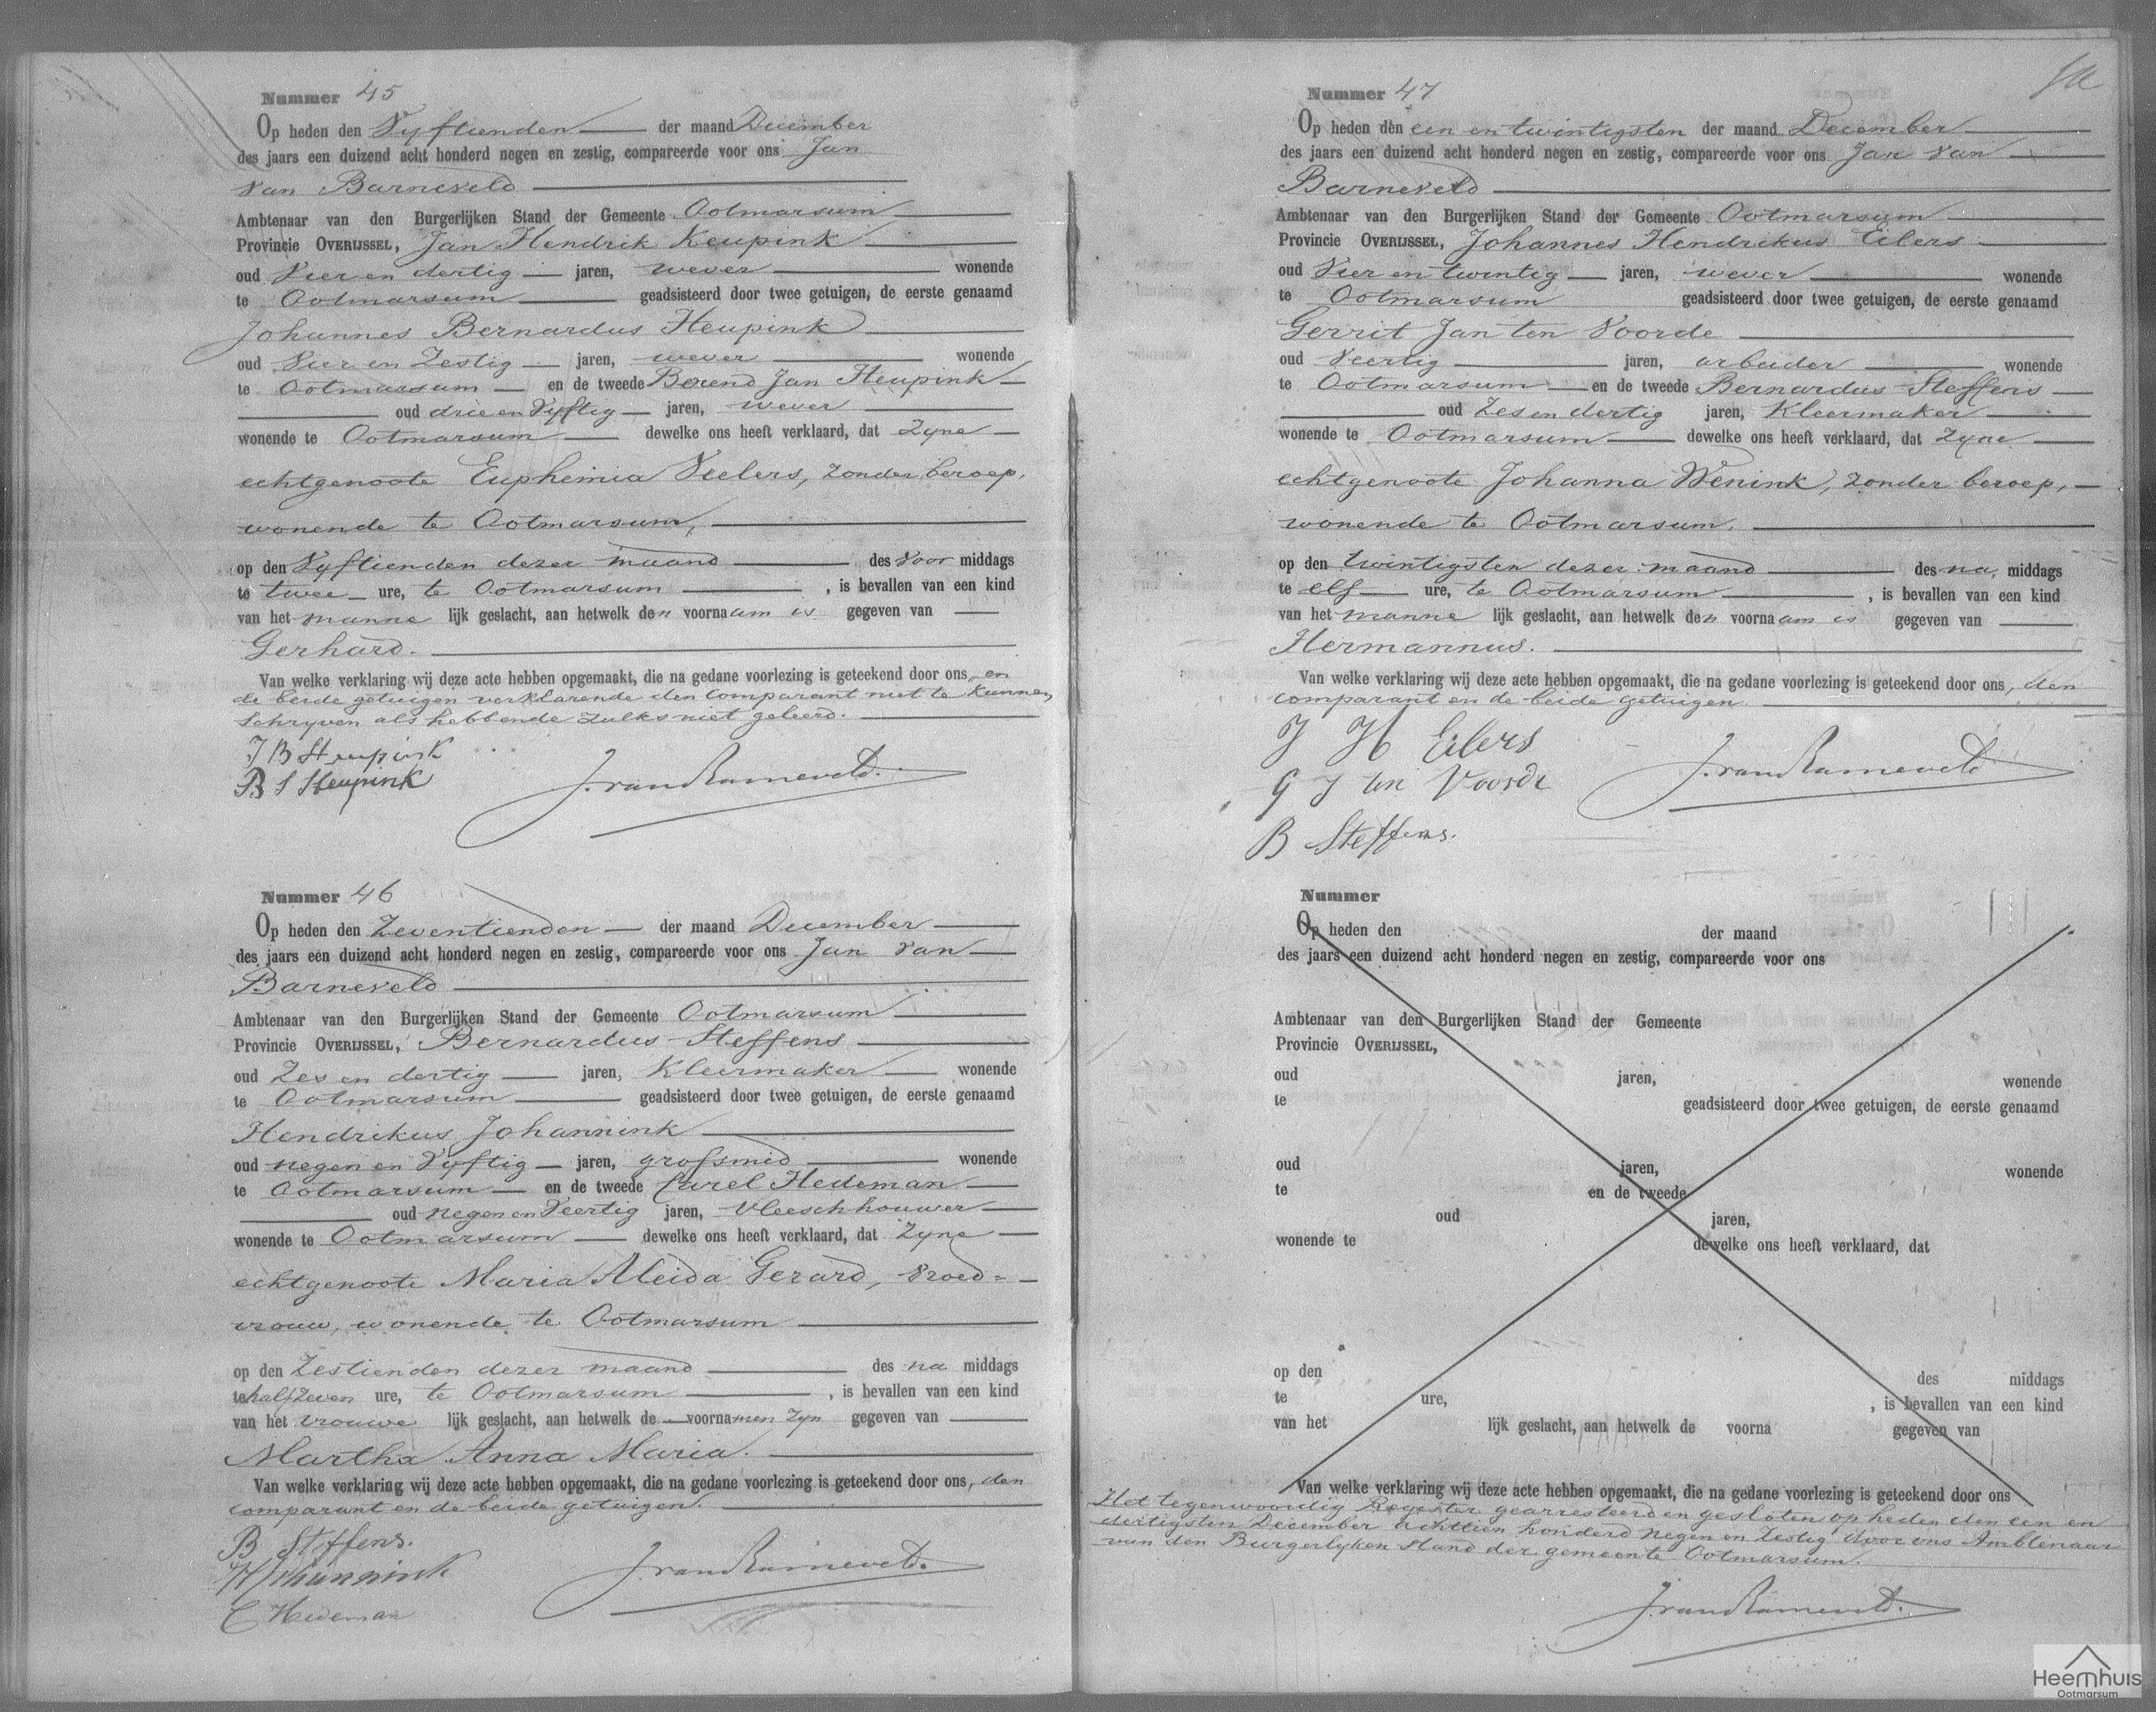 Nummer 45
Op heden den Vyftienden der maand December
des jaars een duizend acht honderd negen en zestig, compareerde voor ons Jan
van Barneveld
Ambtenaar van den Burgerlijken Stand der Gemeente Ootmarsum
Provincie OVERIJSSEL, Jan Hendrik Heupink
oud Vier en dertig jaren, wever wonende
te Ootmarsum geadsisteerd door twee getuigen, de eerste genaamd
Johannes Bernardus Heupink
oud Vier en Zestig jaren, wever wonende
te Ootmarsum en de tweede Berend Jan Heupink
oud drie en Vyftig jaren, wever
wonende te Ootmarsum dewelke ons heeft verklaard, dat Zyne
echtgenoote Euphemia Velers, zonder beroep,
wonende te Ootmarsum,
op den Vyftienden dezer maand des voor middags
te twee ure, te Ootmarsum, is bevallen van een kind
van het manne lijk geslacht, aan hetwelk den voornaam is gegeven van
Gerhard.
Van welke verklaring wij deze acte hebben opgemaakt, die na gedane voorlezing is geteekend door ons, en
de beide getuigen verklarende den Comparant niet te kunnen
Schryven als hebbende zulks niet geleerd.
J B Heupink
B J Heupink J. van Barneveld.
Nummer 46
Op heden den Zeventienden der maand December
des jaars een duizend acht honderd negen en zestig, compareerde voor ons Jan van
Barneveld
Ambtenaar van den Burgerlijken Stand der Gemeente Ootmarsum
Provincie OVERIJSSEL, Bernardus Steffens
oud Zes en dertig jaren, Kleermaker wonende
te Ootmarsum geadsisteerd door twee getuigen, de eerste genaamd
Hendrikus Johannink
oud negen en Vyftig jaren, grofsmid wonende
te Ootmarsum en de tweede Carel Hedeman
oud negen en Veertig jaren, Vleeschhouwer
wonende te Ootmarsum dewelke ons heeft verklaard, dat Zyne
echtgenoote Maria Aleida Gerard, Vroed=
vrouw, wonende te Ootmarsum
op den Zestienden dezer maand des na middags
te half Zeven ure, te Ootmarsum, is bevallen van een kind
van het vrouwe lijk geslacht, aan hetwelk de voornamen Zyn gegeven van
Martha Anna Maria.
Van welke verklaring wij deze acte hebben opgemaakt, die na gedane voorlezing is geteekend door ons, den
comparant en de beide getuigen.
B Steffens.
H Johannink J. van Barneveld.
C Hedeman
Nummer 47
Op heden den een en twintigsten der maand December
des jaars een duizend acht honderd negen en zestig, compareerde voor ons Jan van
Barneveld
Ambtenaar van den Burgerlijken Stand der Gemeente Ootmarsum
Provincie OVERIJSSEL, Johannes Hendrikus Eilers
oud Vier en twintig jaren, wever wonende
te Ootmarsum geadsisteerd door twee getuigen, de eerste genaamd
Gerrit Jan ten Voorde
oud Veertig jaren, arbeider wonende
te Ootmarsum en de tweede Bernardus Steffens
oud Zes en dertig jaren, Kleermaker
wonende te Ootmarsum dewelke ons heeft verklaard, dat Zyne
echtgenoote Johanna Wenink, zonder beroep,
wonende te Ootmarsum,
op den twintigsten dezer maand des na middags
te elf ure, te Ootmarsum, is bevallen van een kind
van het manne lijk geslacht, aan hetwelk den voornaam is gegeven van
Hermannus.
Van welke verklaring wij deze acte hebben opgemaakt, die na gedane voorlezing is geteekend door ons, den
comparant en de beide getuigen.
J H Eilers
G J ten Voorde J. van Barneveld
B Steffens.
Nummer
Op heden den der maand
des jaars een duizend acht honderd negen en zestig, compareerde voor ons
Ambtenaar van den Burgerlijken Stand der Gemeente
Provincie OVERIJSSEL,
oud jaren, wonende
te geadsisteerd door twee getuigen, de eerste genaamd
oud jaren, wonende
te en de tweede
oud jaren,
wonende te dewelke ons heeft verklaard, dat
op den des middags
te ure, , is bevallen van een kind
van het lijk geslacht, aan hetwelk de voorna gegeven van
Van welke verklaring wij deze acte hebben opgemaakt, die na gedane voorlezing is geteekend door ons
Het tegenwoordig Register gearresteerd en gesloten op heden den een en
dertigsten December achttien honderd negen en Zestig door ons Ambtenaar
van den Burgerlyken stand der gemeente Ootmarsum.
J. van Barneveld.
Heemhuis
Ootmarsum